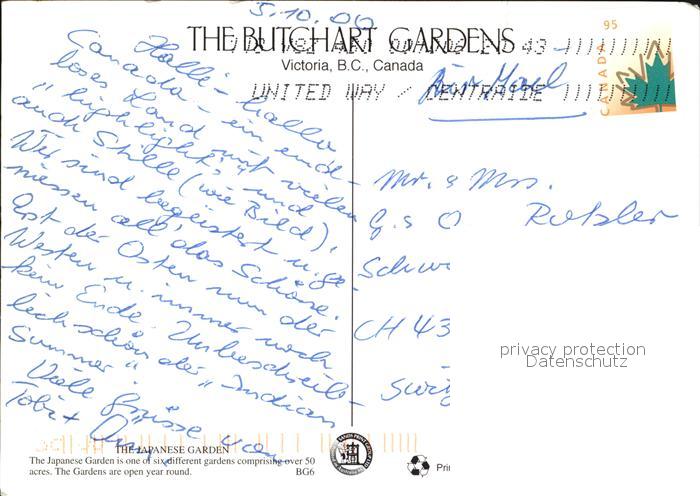 5.10.00
THE BUTCHART GARDENS
Victoria, B.C., Canada
95
CANADA
43
UNITED WAY / CENTRAIDE
Air Mail
Halli - Hallo
Canada - ein end-
loses Land mit vielen
"highlights" und
auch Stille (wie Bild).
Wir sind begeistert u. ge-
niessen all das Schöne.
Erst der Osten nun der
Westen u. immer noch
kein Ende. Unbeschreib-
lich schön der "Indian
Summer".
Viele Grüsse von
Tobi +
Mr. & Mrs.
G. & O Rotzler
CH 43
privacy protection
Datenschutz
THE JAPANESE GARDEN
The Japanese Garden is one of six different gardens comprising over 50
acres. The Gardens are open year round. BG6
Pri